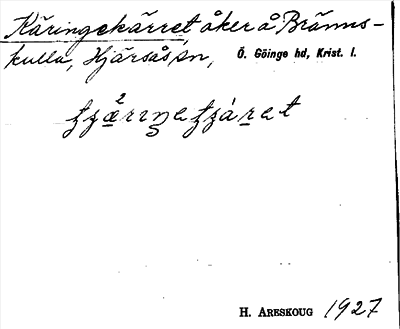 Käringekärret, åker å Bränns-
kulla, Hjärsås sn, Ö. Göinge hd, Krist. l.
H. ARESKOUG 1927